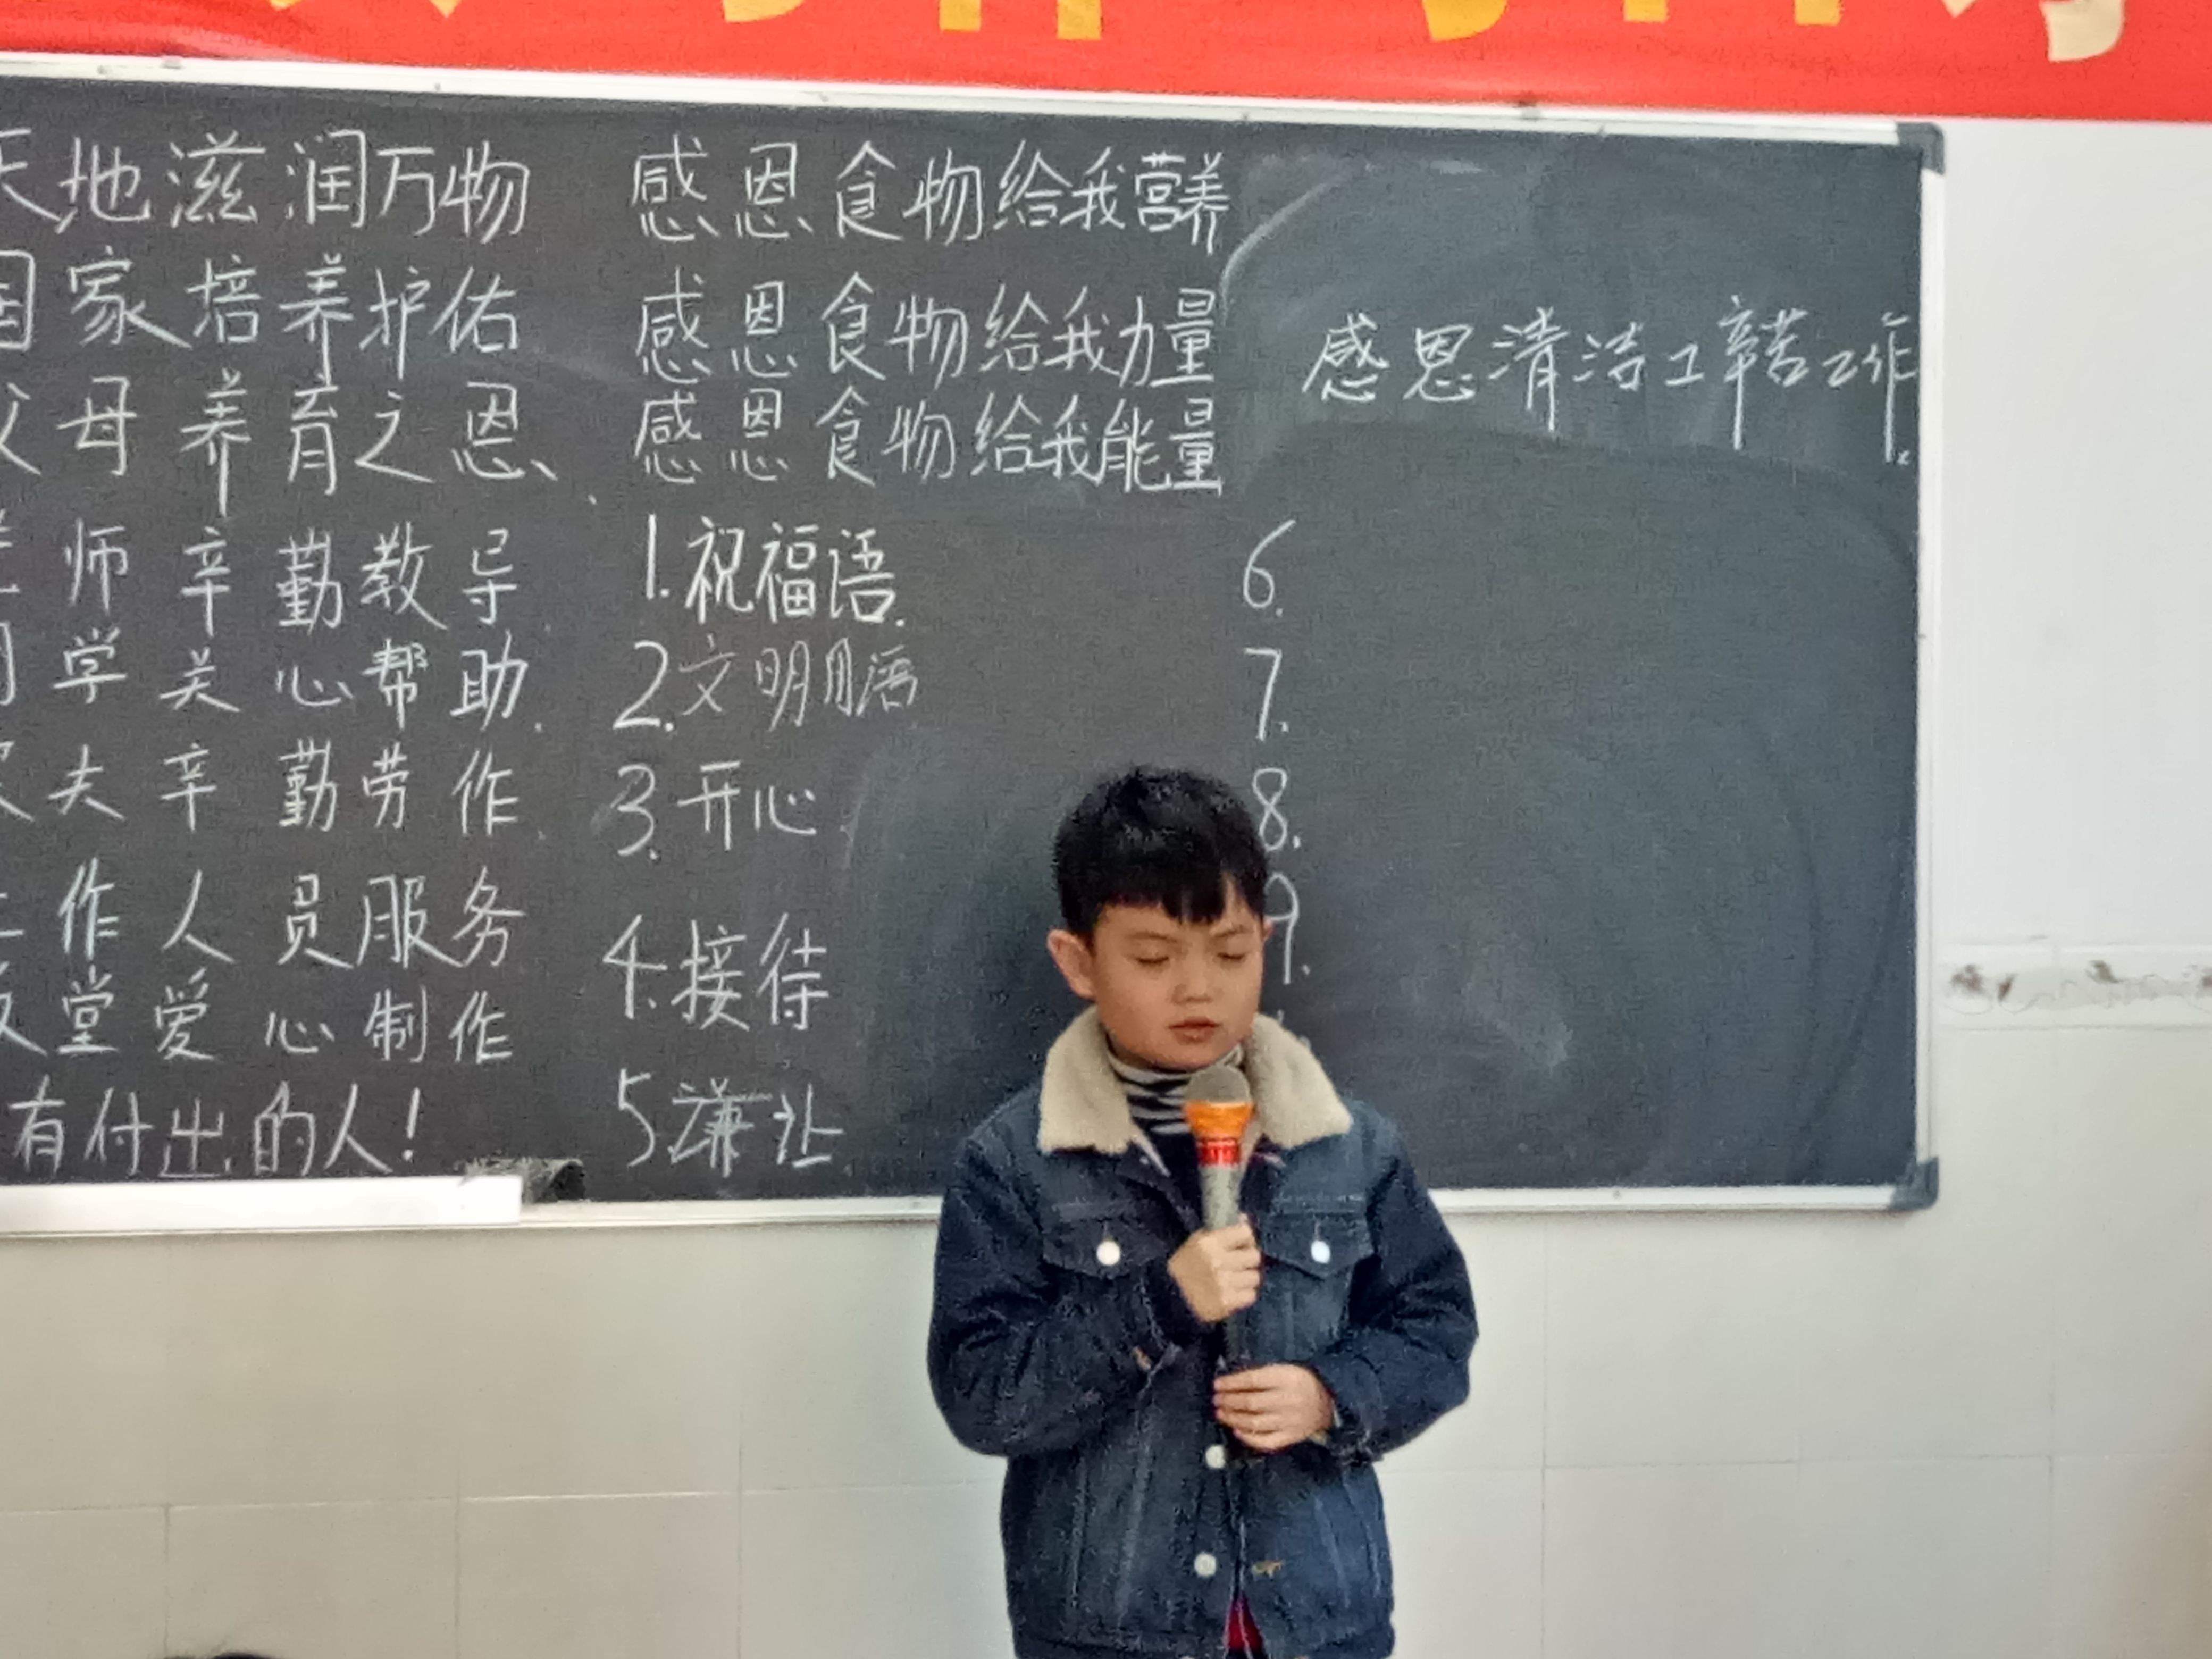 天地滋润万物
国家培养护佑
父母养育之恩、
师辛勤教导
学关心帮助.
夫辛勤劳作.
作人员服务
堂爱心制作
有付出的人!
感恩食物给我营养
感恩食物给我力量
感恩食物给我能量
1.祝福语.
2.文明用语
3.开心
4.接待
5.谦让
感恩清洁工辛苦工作.
6.
7.
8.
9.